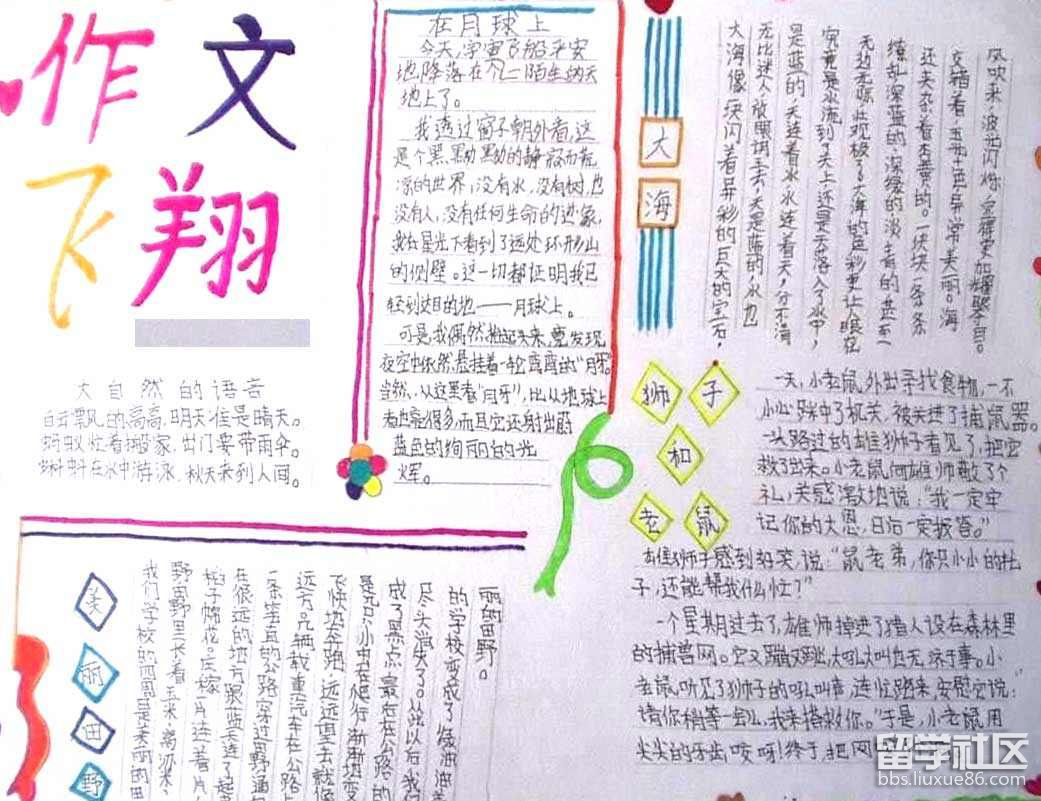 作文
飞翔
大自然的语言
白云飘的高高,明天准是晴天。
蚂蚁忙着搬家,出门要带雨伞。
蝌蚪在水中游泳,秋天来到人间。
在月球上
今天,宇宙飞船平安
地降落在个一陌生的天
地上了。
我透过窗子朝外看,这
是个黑黝黝的静寂而荒
凉的世界,没有水,没有树,也
没有人,没有任何生命的迹象,
我在星光下看到了远处环形山
的侧壁。这一切都证明我已
经到达目的地——月球上。
可是,我偶然抬起头来,竟发现
夜空中依然悬挂着一轮弯弯的“月牙”
当然,从这里看“月牙”,比从地球上
看也亮很多,而且它还射出蔚
蓝色的绚丽的光
辉。
大海
风吹来,波光闪烁,显得更加耀眼夺目。
交错着,五光十色,异常美丽。海
还夹杂着杏黄的。一块块,一条条
缭乱,深蓝的、深绿的、淡青的
无边无际,
究竟是水流到了天上,还是天落入了水中,
是蓝的,天连着水,水连着天,分不清
无比迷人,放眼望去,天是蓝的,水也
大海像一块闪着异彩的巨大的宝石,
狮子
和
老鼠
一天,小老鼠外出寻找食物,一不
小心踩中了机关,被关进了捕鼠器。
一头路过的雄狮子看见了,把它
救了出来。小老鼠向雄狮敬了个
礼,
感激地说:“我一定牢
记你的大恩,日后一定报答。”
雄狮子感到好笑,说:“鼠老弟,你只小小的肚
子,还能帮我什么忙?”
一个星期过去了,雄师掉进了猎人设在森林里
的捕兽网。它又蹦又跳,大吼大叫也无济于事。小
老鼠听见了狮子的吼叫声,连忙跑来,安慰它说:“
请你稍等一会儿,我来搭救你。”于是,小老鼠用
尖尖的牙齿咬呀!终于把网
美丽田野
丽的田野。
的学校变成了
尽头消失了。从此以后我
成了黑点,最后在公路的
是只小虫在爬行,渐渐变
飞快奔跑,远远望去就像
远方,几辆载重汽车在公路上
一条笔直的公路穿过田野通向
在很远的地方
稻子、棉花。庄稼一片连着一片,
野。田野里长着玉米、高粱、
我们学校的四周是美丽的田
留学社区
bbs.liuxue86.com